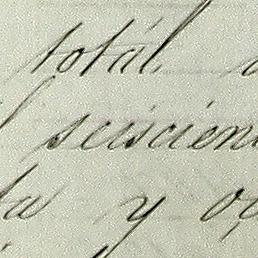 totál
seiscien
ta y oc